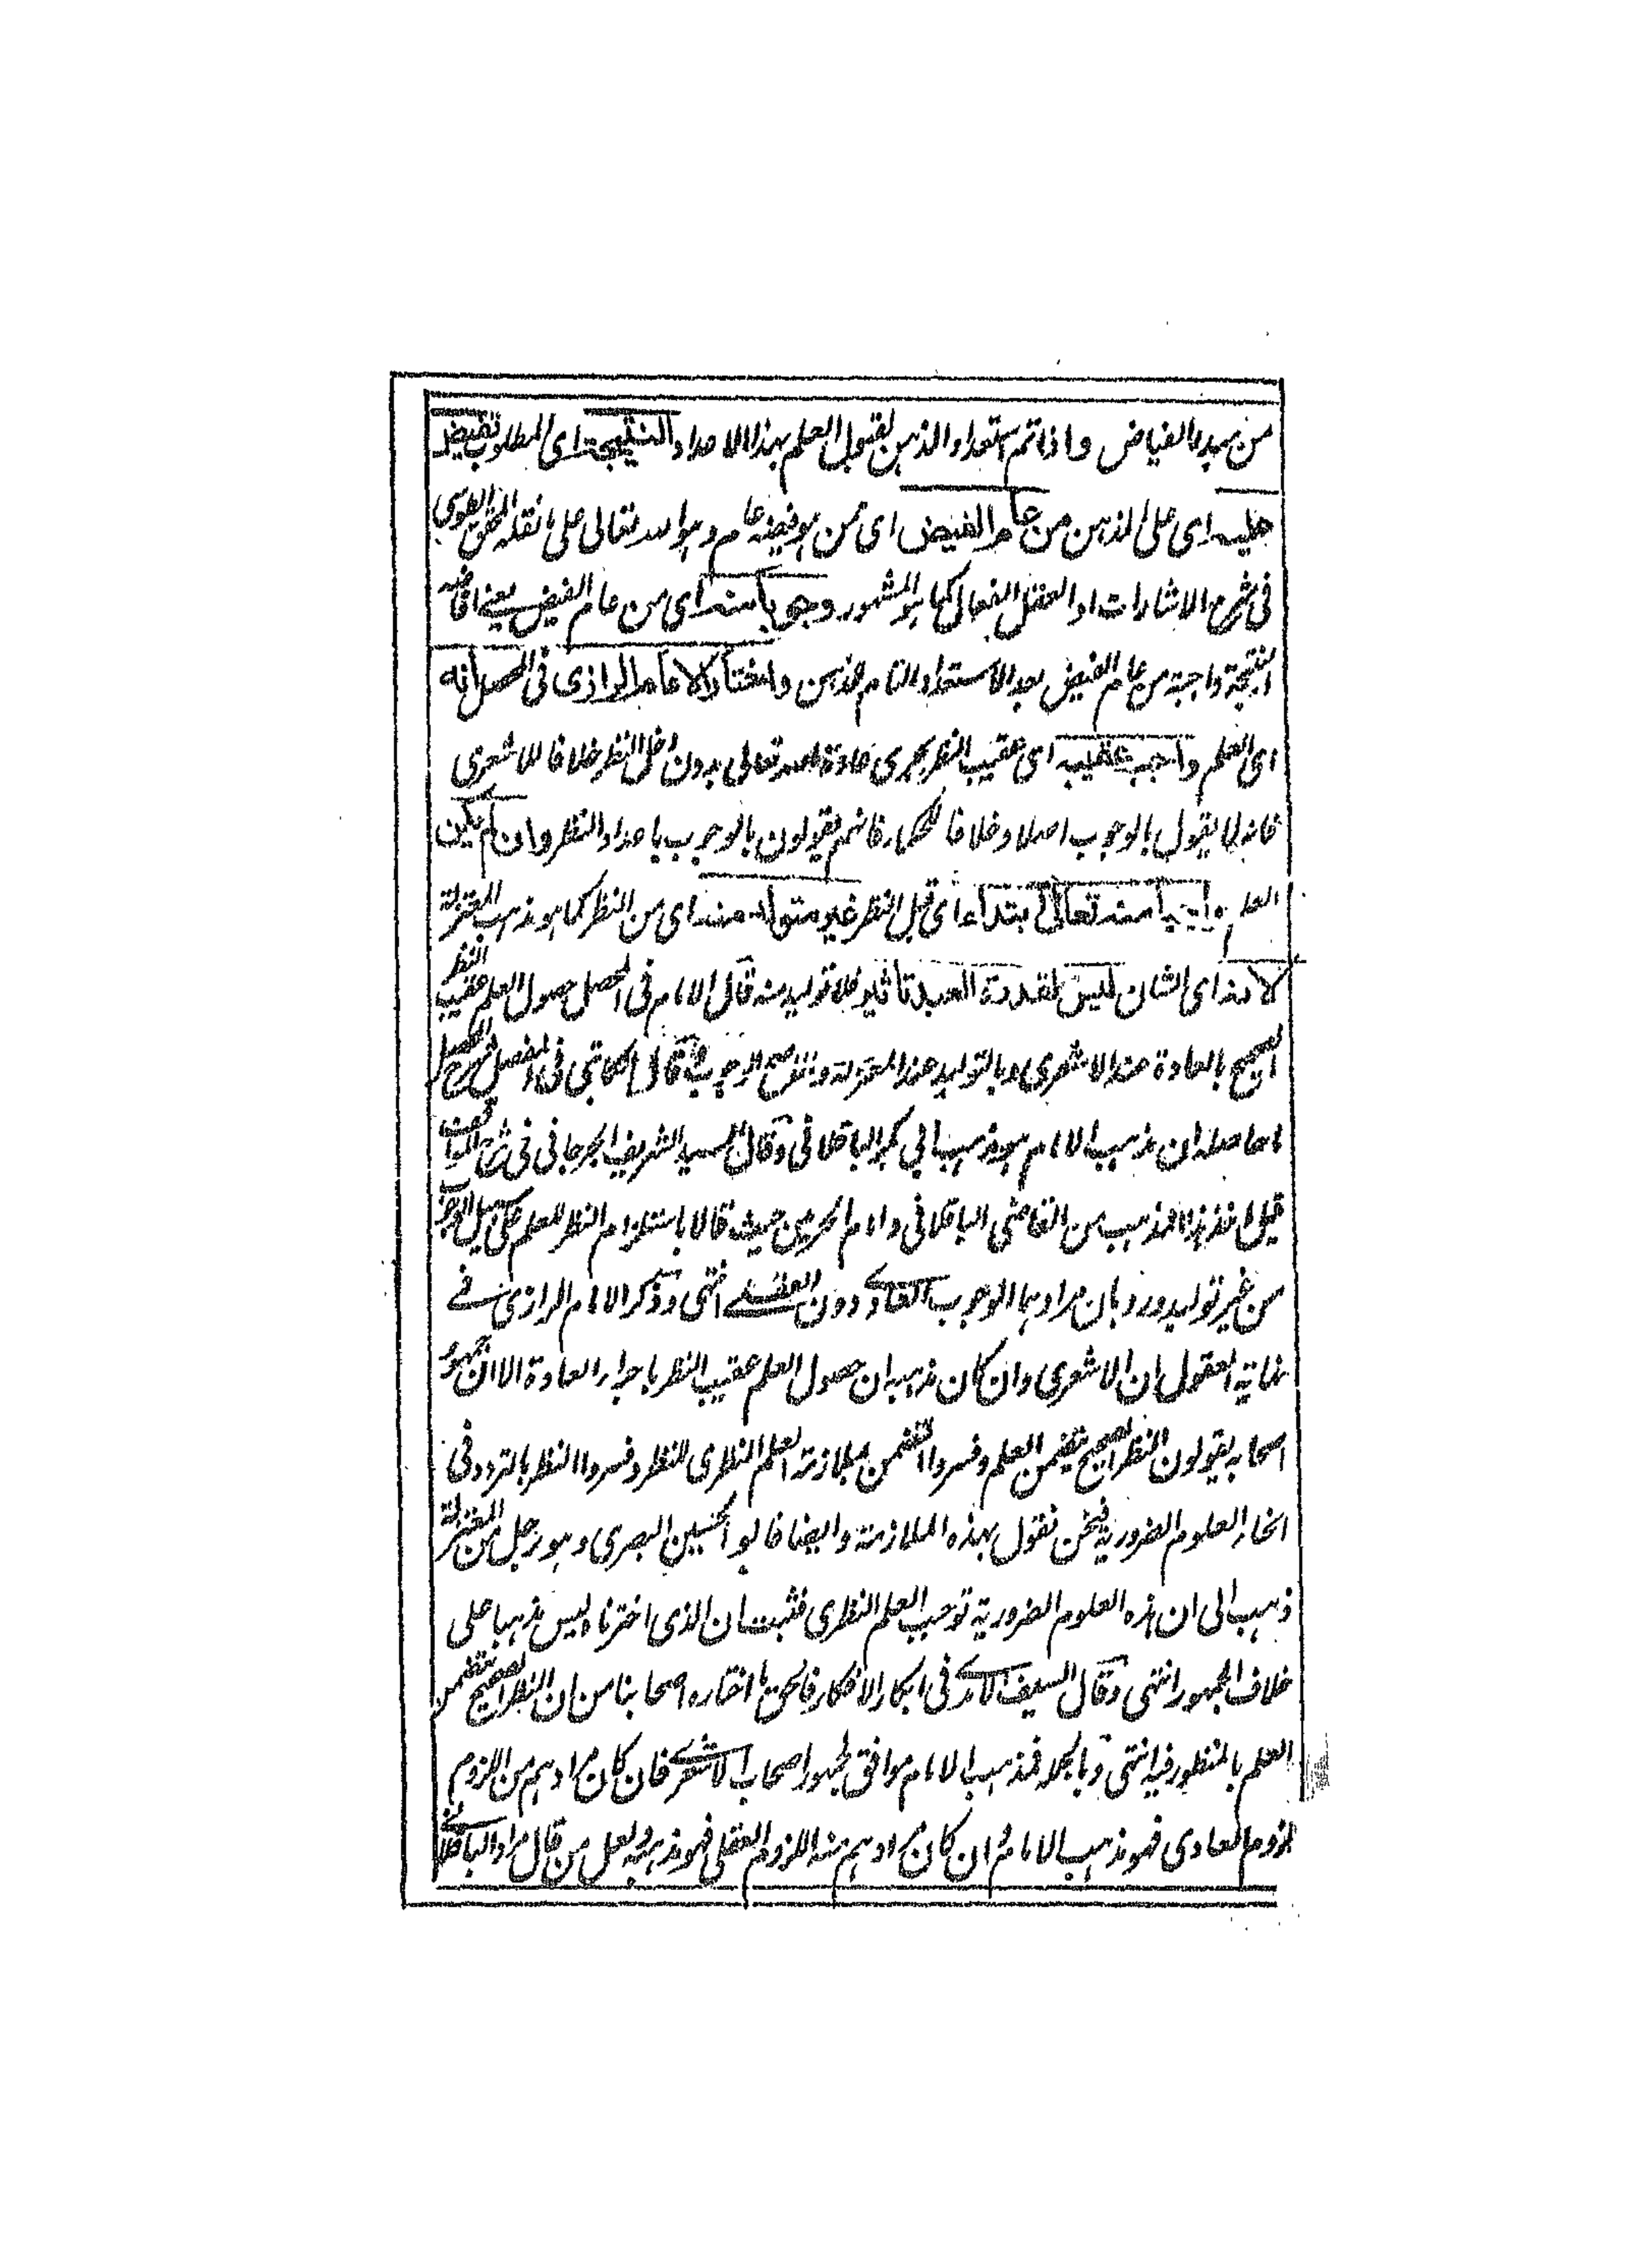 من مبدء الفياض واذا تم استعداد الذهن لقبول العلم بهذا الاعداد النتيجة اى المطلوب تفيض
عليه اى على الذهن من عام الفيض اى من هو فيضه عام وهو الله تعالى على ما نقله المحقق الطوسى
فى شرح الاشارات او العقل الفعال كما هو المشهور وجوبا منه اى من عام الفيض يعنے افاضة
النتيجة واجبة من عام الفيض بعد الاستعداد التام للذهن واختار الامام الرازى فى المحصل انه
اى العلم واجب عقيبه اى عقيب النظر بجرى عادة الله تعالى بدون دخل النظر خلافا للاشعرى
فانه لا يقول بالوجوب اصلا وخلافا للحكماء فانهم يقولون بالوجوب باعداد النظر وان لم يكن
العلم واجبا منه تعالى ابتداء اى قبل النظر غير متولد منه اى من النظر كما هو مذهب المعتزلة
لانه اى الشان ليس لقدرة العبد تاثير فلا توليد منه قال الامام فى المحصل حصول العلم عقيب النظر
الصحيح بالعادة عند الاشعرى وبالتوليد عند المعتزلة والاصح الوجوب قال الكاتبى فى المفصل شرح المحصل
ما حاصله ان مذهب الامام هو مذهب ابى بكر الباقلانى وقال السيد الشريف الجرجانى فى شرح المواقف
قيل اخذ هذا المذهب من القاضى الباقلانى وامام الحرمين حيث قالا باستلزام النظر للعلم على سبيل الوجوب
من غير توليد ورد بان مرادهما الوجوب العادے دون العقلے انتهى وذكر الامام الرازى فے
نهاية العقول ان الاشعرى وان كان مذهبه ان حصول العلم عقيب النظر باجراء العادة الا ان جمهور
اصحابه يقولون النظر الصحيح يتضمن العلم وفسروا التضمن بملازمة العلم النظرى للنظر وفسروا النظر بالتردد فى
انحاء العلوم الضرورية فنحن نقول بهذه الملازمة وايضا فابو الحسين البصرى وهو رجل من المعتزلة
ذهب الى ان هذه العلوم الضرورية توجب العلم النظرى فثبت ان الذى اخترناه ليس مذهبا على
خلاف الجمهور انتهى وقال السيف الامدے فى ابكار الافكار فالحق ما اختاره اصحابنا من ان النظر الصحيح يتضمن
العلم بالمنظور فيه انتهى وبالجملة فمذهب الامام موافق لجمهور اصحاب الاشعرے فان كان مرادهم من اللزوم
لزوم العادى فهو مذهب الامام وان كان مرادهم منه اللزوم العقلى فهو مذهبه ولعل من قال مراد الباقلانے